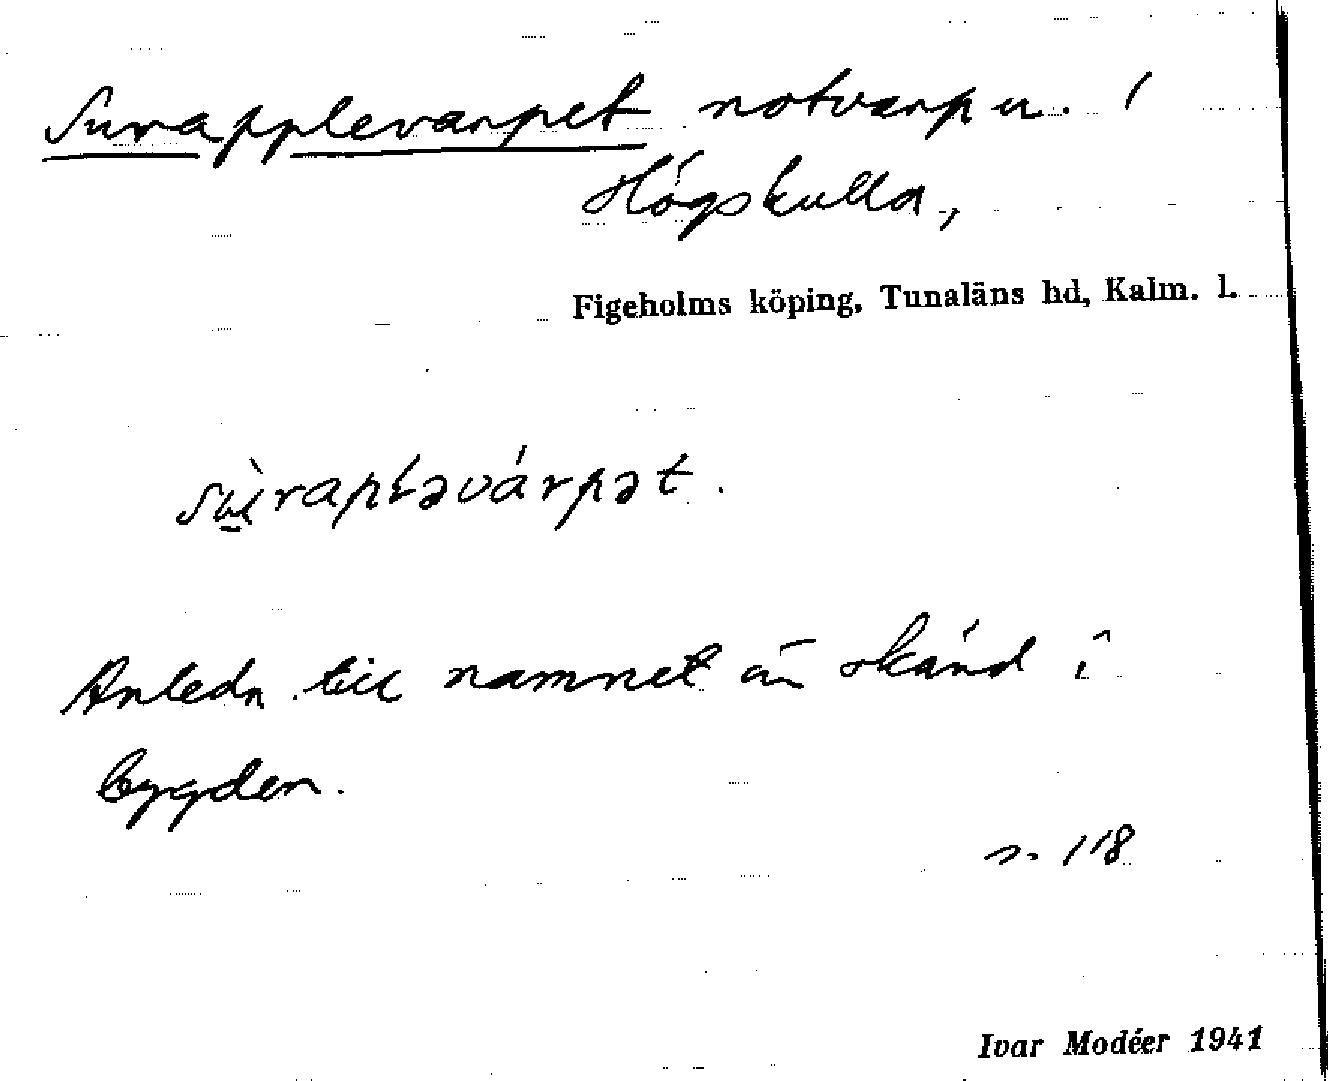 Surapplevarpet notvarp u. /
Högskulla,
Figeholms köping, Tunaläns hd, Kalm. l.
sùraplavárpət.
Anledn. till namnet är okänd i
bygden.
s. 118
Ivar Modéer 1941